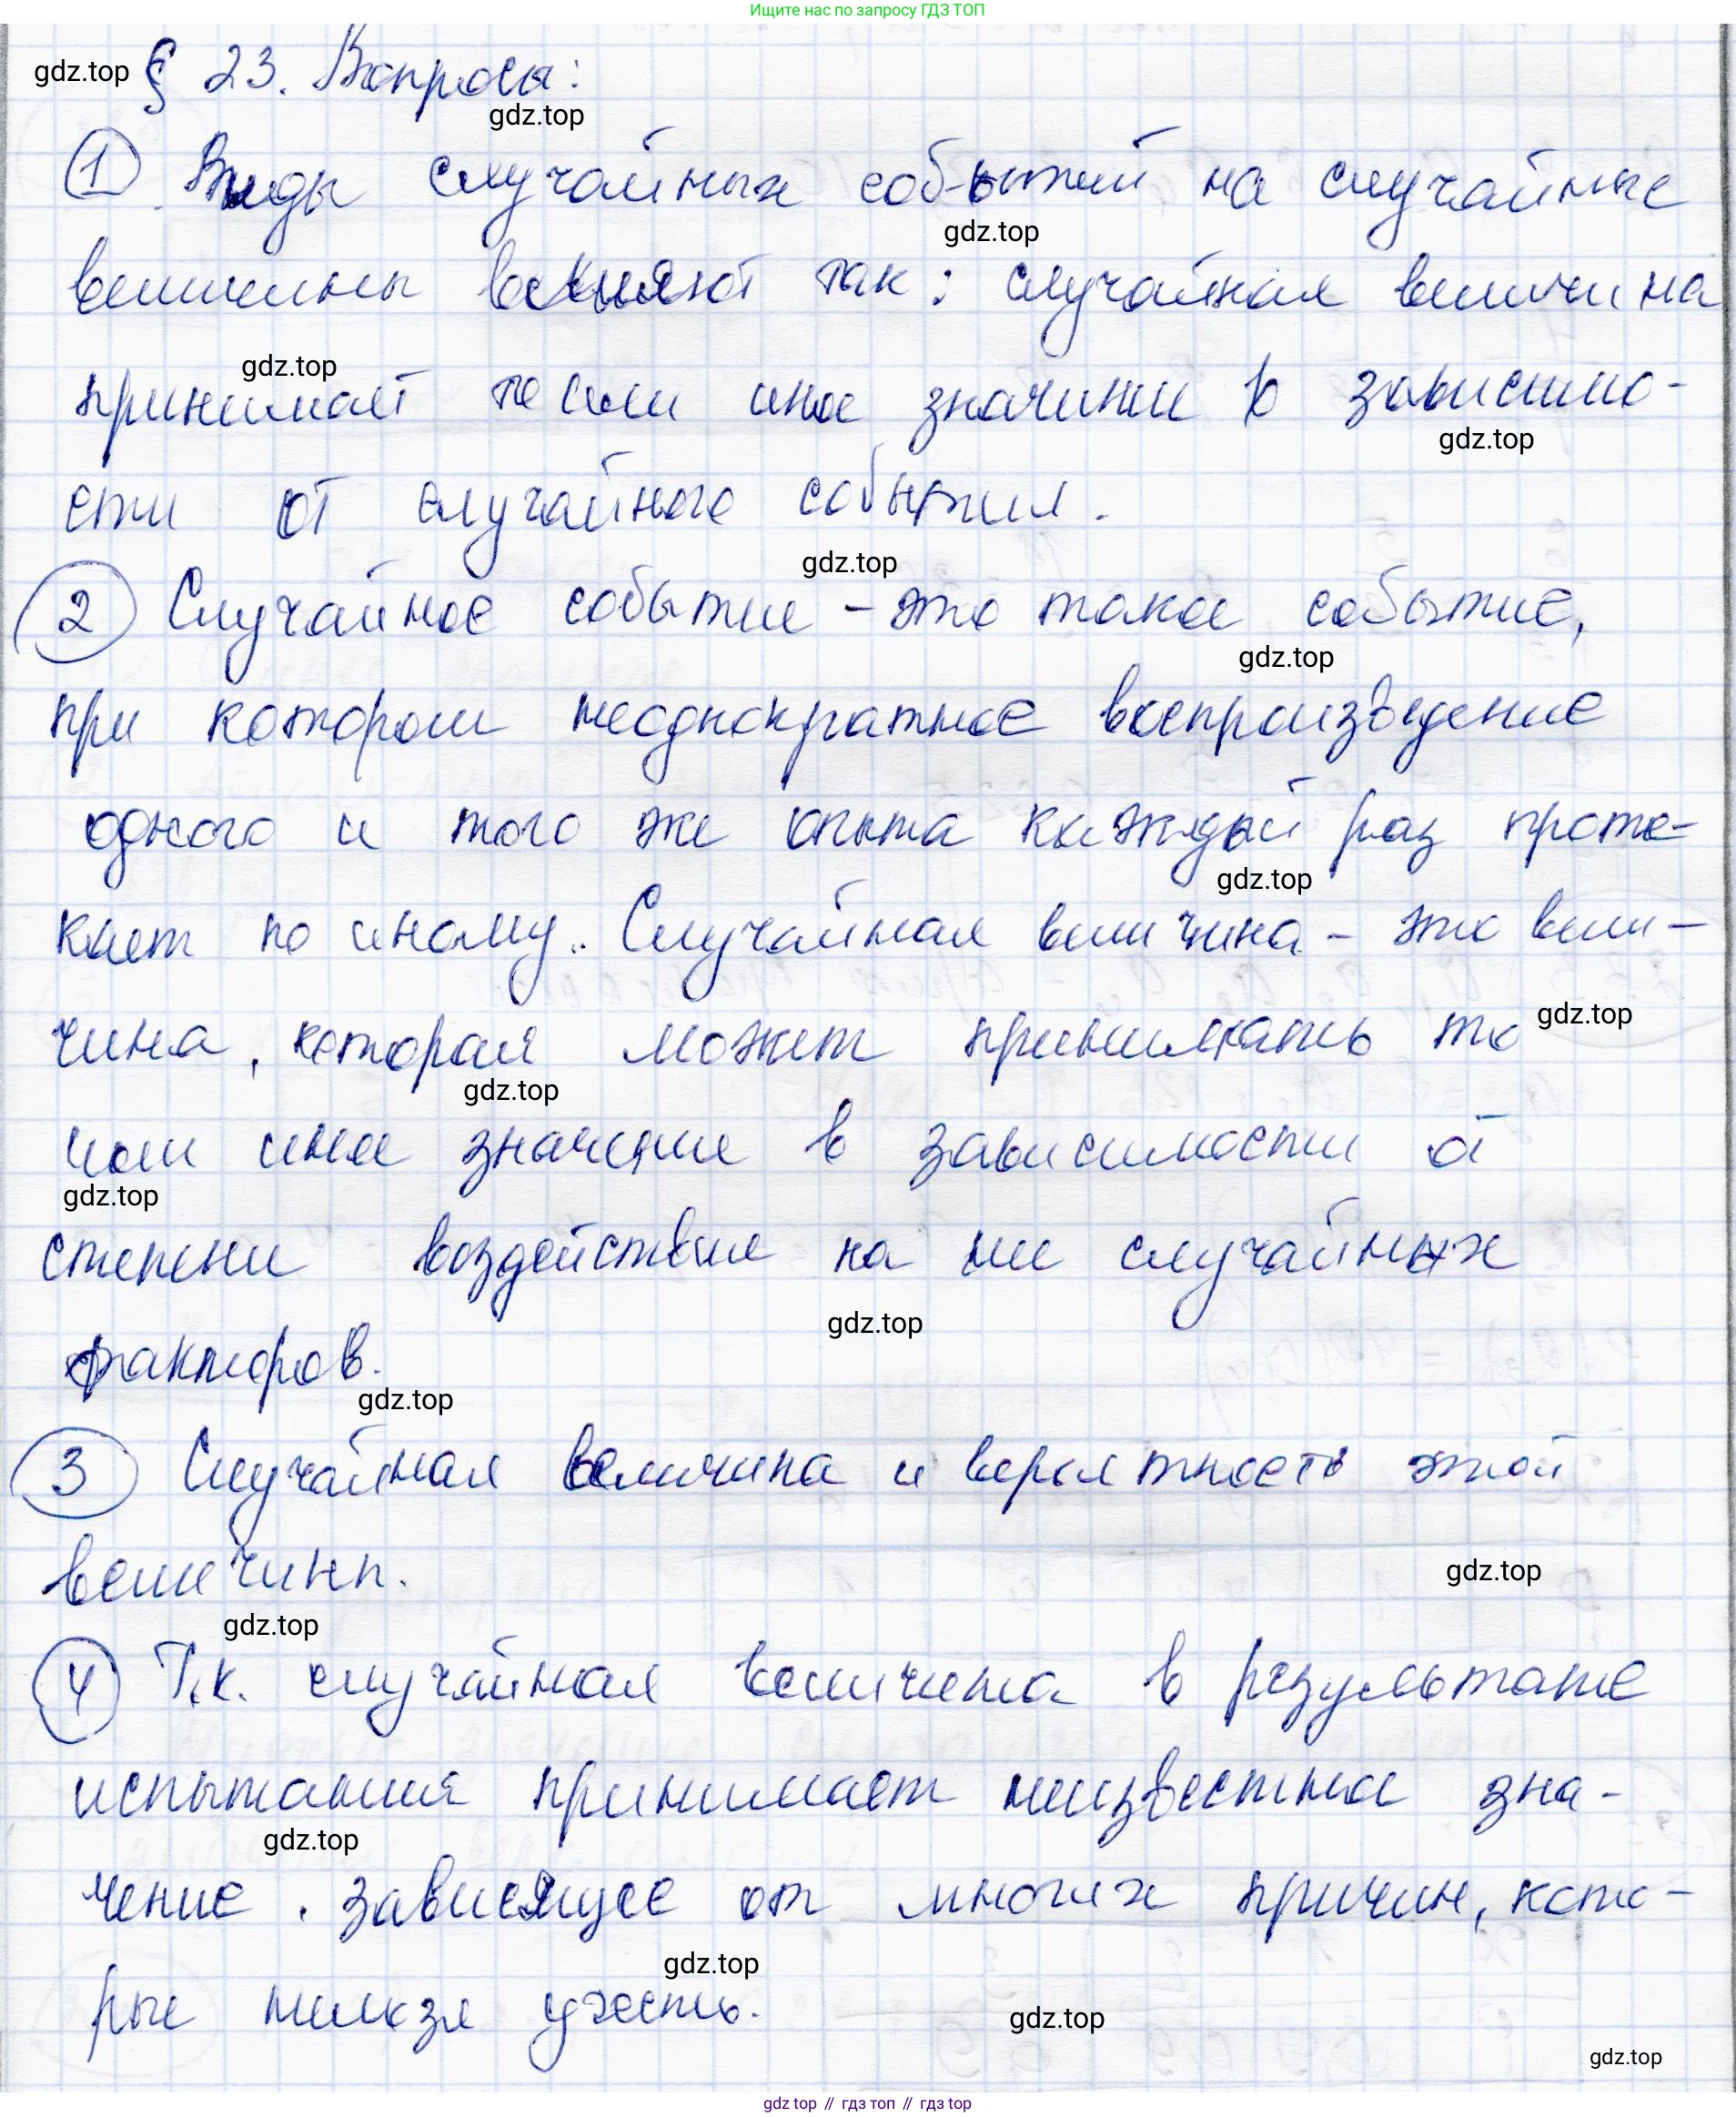 Ищите нас по запросу ГДЗ ТОП
gdz.top § 23. Вопросы:
gdz.top
1 Виды случайных событий на случайные
gdz.top
величины влияют так: случайная величина
gdz.top
принимает то или иное значение в зависимо-
gdz.top
сти от случайного события.
gdz.top
2 Случайное событие – это такое событие,
gdz.top
при котором неоднократное воспроизведение
одного и того же опыта каждый раз проте-
gdz.top
кает по иному. Случайная величина – это вели-
чина, которая может принимать то gdz.top
gdz.top
или иное значение в зависимости от
gdz.top
степени воздействия на нее случайных
gdz.top
факторов.
gdz.top
3 Случайная величина и вероятность этой
величины.
gdz.top
gdz.top
4 Т.к. случайная величина в результате
испытания принимает неизвестное зна-
gdz.top
чение, зависящее от многих причин, кото-
gdz.top
рые нельзя учесть.
gdz.top
gdz.top
gdz.top // гдз топ // гдз top